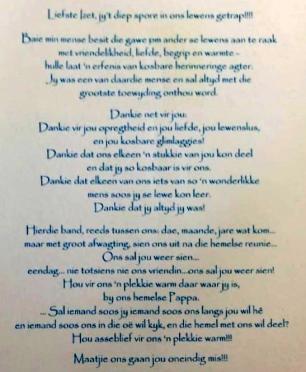 Liefste Izet, jy't diep spore in ons lewens getrap!!!!
Baie min mense besit die gawe pm ander se lewens aan te raak
met vriendelikheid, liefde, begrip en warmte -
hulle laat 'n erfenis van kosbare herinneringe agter.
Jy was een van daardie mense en sal altyd met die
grootste toewyding onthou word.
Dankie net vir jou:
Dankie vir jou opregtheid en jou liefde, jou lewenslus,
en jou kosbare glimlaggies!
Dankie dat ons elkeen 'n stukkie van jou kon deel
en dat jy so kosbaar is vir ons.
Dankie dat elkeen van ons iets van so 'n wonderlike
mens soos jy se lewe kon leer.
Dankie dat jy altyd jy was!
Hierdie band, reeds tussen ons: dae, maande, jare wat kom...
maar met groot afwagting, sien ons uit na die hemelse reunie...
Ons sal jou weer sien...
eendag... nie totsiens nie ons vriendin...ons sal jou weer sien!
Hou vir ons 'n plekkie warm daar waar jy is,
by ons hemelse Pappa.
... Sal iemand soos jy iemand soos ons langs jou wil hê
en iemand soos ons in die oë wil kyk, en die hemel met ons wil deel?
Hou asseblief vir ons 'n plekkie warm!!!
Maatjie ons gaan jou oneindig mis!!!